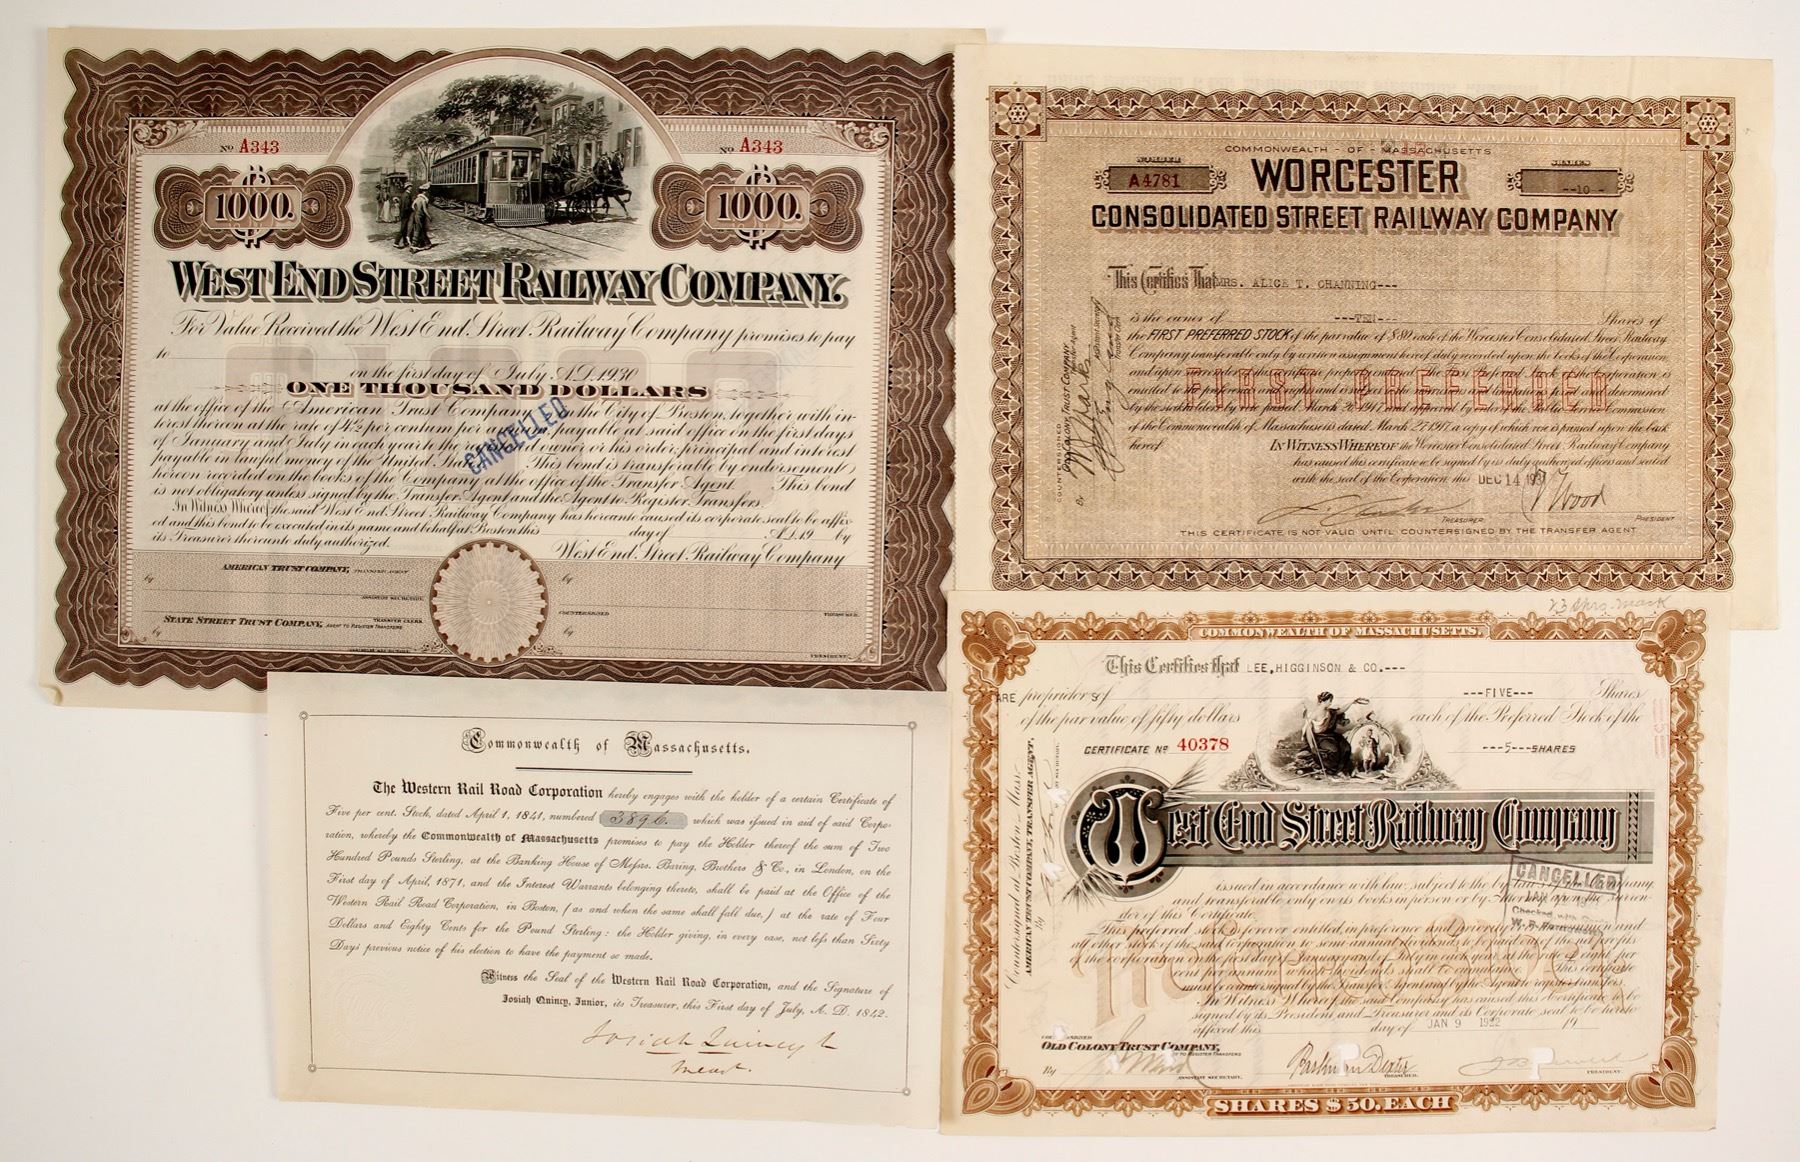 Nº A343
Nº A343
1000.
1000.
WEST END STREET RAILWAY COMPANY.
For Value Received the West End Street Railway Company promises to pay
to
on the first day of July A.D. 1930
ONE THOUSAND DOLLARS
at the office of the American Trust Company in the City of Boston, together with in-
terest thereon at the rate of 4½ per centum per annum, payable at said office on the first days
of January and July in each year to the registered owner or his order, principal and interest
payable in lawful money of the United States. This bond is transferable by endorsement
hereon recorded on the books of the Company at the office of the Transfer Agent. This bond
is not obligatory unless signed by the Transfer Agent and the Agent to Register Transfers.
In Witness Whereof the said West End Street Railway Company has hereunto caused its corporate seal to be affix-
ed and this bond to be executed in its name and behalf at Boston this day of A.D. 19 by
its Treasurer thereunto duly authorized.
West End Street Railway Company
CANCELLED
AMERICAN TRUST COMPANY, TRANSFER AGENT
by
by
ASSISTANT SECRETARY.
COUNTERSIGNED
TREASURER.
TRANSFER CLERK
STATE STREET TRUST COMPANY, AGENT TO REGISTER TRANSFERS
by
by
ASSISTANT SECRETARY.
PRESIDENT.
COMMONWEALTH - OF - MASSACHUSETTS
NUMBER
A4781
WORCESTER
SHARES
--10--
CONSOLIDATED STREET RAILWAY COMPANY
This Certifies That MRS. ALICE T. CHANNING---
is the owner of ---TEN--- Shares of
the FIRST PREFERRED STOCK of the par value of $80 each of the Worcester Consolidated Street Railway
Company transferable only by written assignment hereof duly recorded upon the books of the Corporation
and upon surrender of this certificate properly endorsed. The First Preferred Stock of the Corporation is
entitled to the preferences and rights and is subject to the restrictions and limitations fixed and determined
by the stockholders by vote passed March 26 1917 and approved by order of the Public Service Commission
of the Commonwealth of Massachusetts dated March 27 1917, a copy of which vote is printed upon the back
hereof.
FIRST PREFERRED
IN WITNESS WHEREOF the Worcester Consolidated Street Railway Company
has caused this certificate to be signed by its duly authorized officers and sealed
with the seal of the Corporation this DEC 14 1931
Wood
TREASURER
PRESIDENT
THIS CERTIFICATE IS NOT VALID UNTIL COUNTERSIGNED BY THE TRANSFER AGENT
COUNTERSIGNED
OLD COLONY TRUST COMPANY
Transfer Agent
By
Commonwealth of Massachusetts.
The Western Rail Road Corporation hereby engages with the holder of a certain Certificate of
Five per cent. Stock, dated April 1, 1841, numbered 3896. which was issued in aid of said Corpo-
ration, whereby the Commonwealth of Massachusetts promises to pay the Holder thereof the sum of Two
Hundred Pounds Sterling, at the Banking House of Messrs. Baring, Brothers & Co., in London, on the
First day of April, 1871, and the Interest Warrants belonging thereto, shall be paid at the Office of the
Western Rail Road Corporation, in Boston, (as and when the same shall fall due,) at the rate of Four
Dollars and Eighty Cents for the Pound Sterling: the Holder giving, in every case, not less than Sixty
Days previous notice of his election to have the payment so made.
Witness the Seal of the Western Rail Road Corporation, and the Signature of
Josiah Quincy, Junior, its Treasurer, this First day of July, A. D. 1842.
Josiah Quincy Jr
Treasr.
COMMONWEALTH OF MASSACHUSETTS.
This Certifies that LEE, HIGGINSON & CO.---
ARE proprietorS of ---FIVE--- Shares
of the par value of fifty dollars each of the Preferred Stock of the
CERTIFICATE Nº 40378
---5---SHARES
West End Street Railway Company
issued in accordance with law, subject to the by-laws of the Company
and transferable only on its books in person or by Attorney upon the surren-
der of this Certificate.
This preferred stock is forever entitled, in preference and priority over the common and
all other stock of the said corporation to semi-annual dividends to be paid out of the net profits
of the corporation on the first days of January and of July in each year, at the rate of eight per
cent per annum, which dividends shall be cumulative. This certificate
must be countersigned by the Transfer Agent and by the Agent to register transfers.
In Witness Whereof, the said Company has caused this Certificate to be
signed by its President and Treasurer and its Corporate seal to be hereto
affixed this day of JAN 9 1922 19
Preferred
CANCELLED
JAN
Countersigned at Boston - Mass:
AMERICAN TRUST COMPANY, TRANSFER AGENT.
By
COUNTERSIGNED
OLD COLONY TRUST COMPANY,
AGENT TO REGISTER TRANSFERS
By
ASSISTANT SECRETARY.
TREASURER.
PRESIDENT.
SHARES $50. EACH